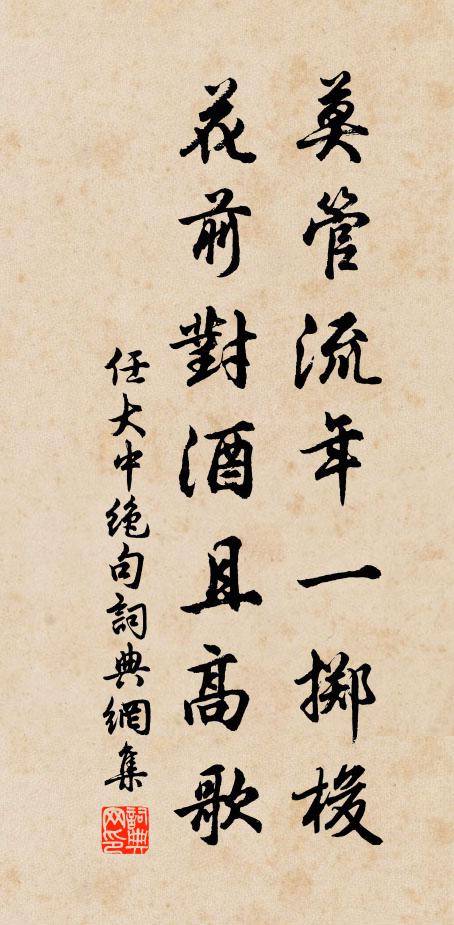 莫管流年一擲梭
花前對酒且高歌
任大中絶句詞典網集
詞典網印